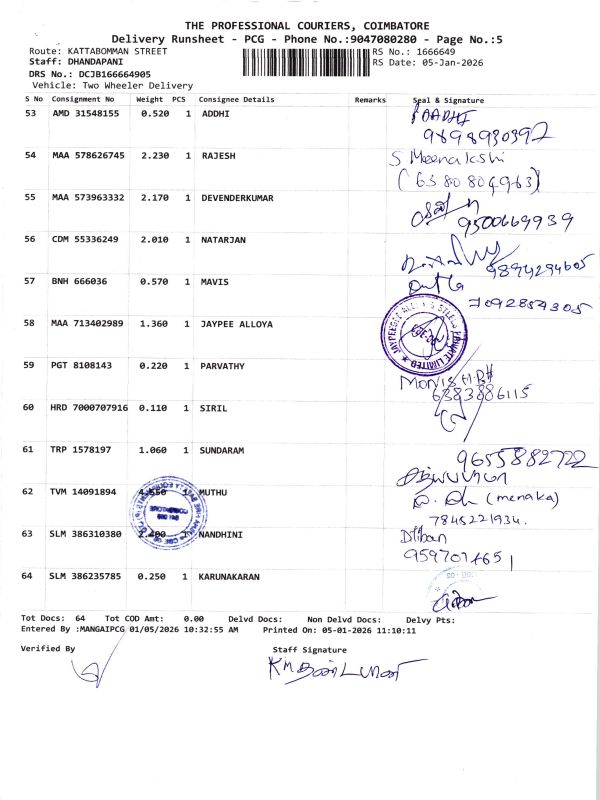 THE PROFESSIONAL COURIERS, COIMBATORE
Delivery Runsheet - PCG - Phone No.:9047080280 - Page No.:5
Route: KATTABOMMAN STREET RS No.: 1666649
Staff: DHANDAPANI RS Date: 05-Jan-2026
DRS No.: DCJB166664905
Vehicle: Two Wheeler Delivery
S No Consignment No Weight PCS Consignee Details Remarks Seal & Signature
53 AMD 31548155 0.520 1 ADDHI AADHI
9898930392
54 MAA 578626745 2.230 1 RAJESH S Meenakshi
(6380804963)
55 MAA 573963332 2.170 1 DEVENDERKUMAR
9500669939
56 CDM 55336249 2.010 1 NATARJAN
9894294605
57 BNH 666036 0.570 1 MAVIS
7092854305
58 MAA 713402989 1.360 1 JAYPEE ALLOYA
PRIVATE LIMITED
59 PGT 8108143 0.220 1 PARVATHY
6383886115
60 HRD 7000707916 0.110 1 SIRIL
61 TRP 1578197 1.060 1 SUNDARAM 9655882722
62 TVM 14091894 4.550 1 MUTHU (menaka)
7845221934.
63 SLM 386310380 2.400 1 NANDHINI
64 SLM 386235785 0.250 1 KARUNAKARAN
Tot Docs: 64 Tot COD Amt: 0.00 Delvd Docs: Non Delvd Docs: Delvy Pts:
Entered By :MANGAIPCG 01/05/2026 10:32:55 AM Printed On: 05-01-2026 11:10:11
Verified By Staff Signature